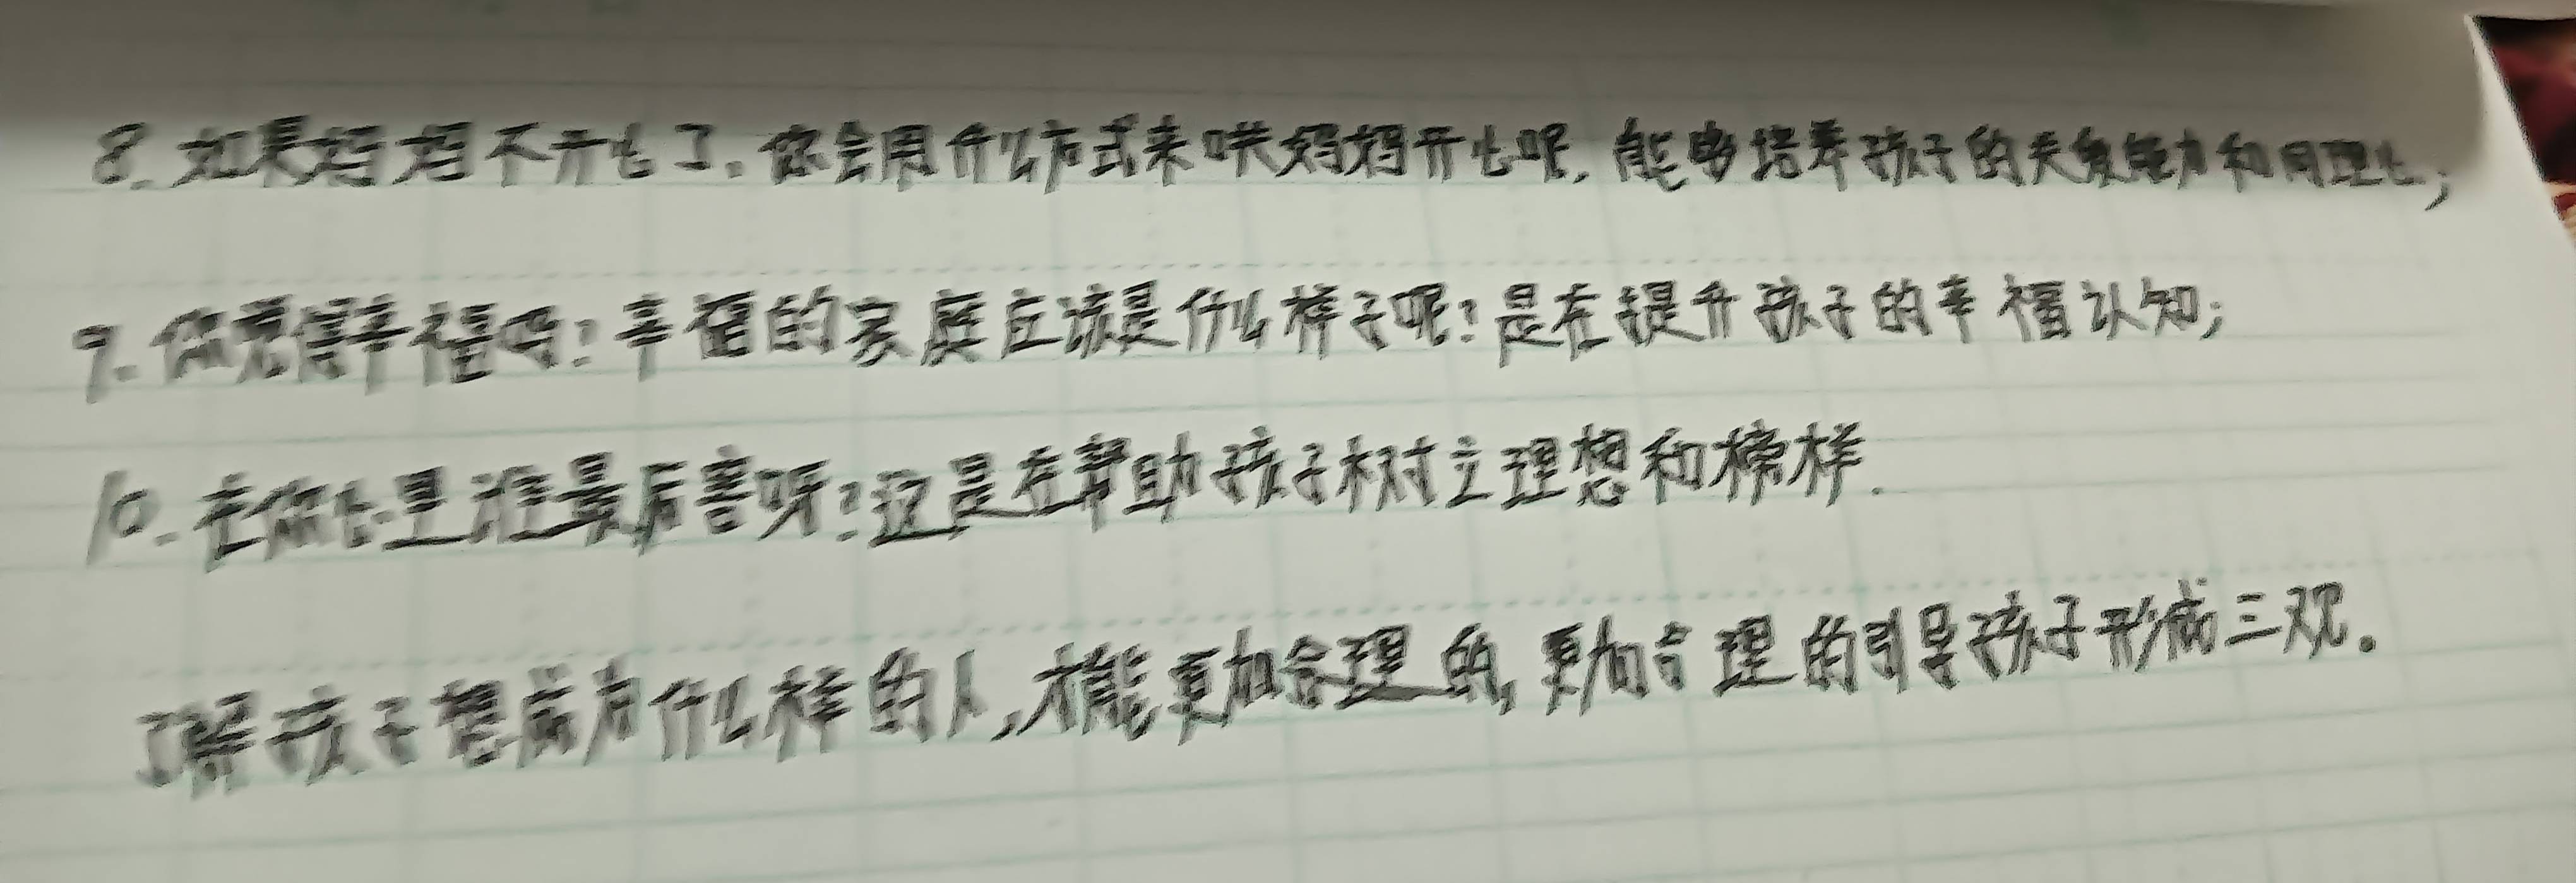 8.如果妈妈不开心了.你会用什么方式来哄妈妈开心呢.能够培养孩子的关系能力和同理心;
9.你觉得幸福吗?幸福的家庭应该是什么样子呢?是在提升孩子的幸福认知;
10.在你心里谁最厉害呀?这是在帮助孩子树立理想和榜样.
了解孩子想成为什么样的人,才能更加合理的,更加合理的引导孩子形成三观。